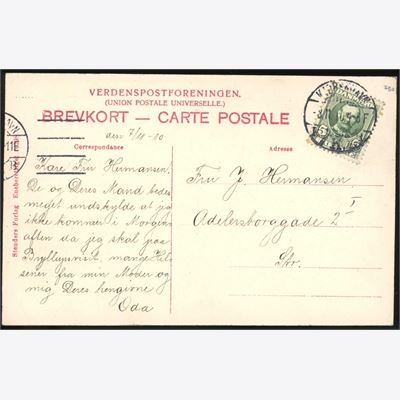 VERDENSPOSTFORENINGEN.
(UNION POSTALE UNIVERSELLE.)
BREVKORT — CARTE POSTALE
den 7/11-00
Correspondance
Adresse
Kære Fru Hermansen!
De og Deres Mand bedes
meget undskylde at jeg
ikke kommer i Morgen
aften da jeg skal paa
Bryllupsvisit, mange Hil
sener fra min Moder og
mig Deres hengivne
Oda
Fru J. Hermansen
Adelersborggade 2 I
Str.
Stenders Forlag
11E